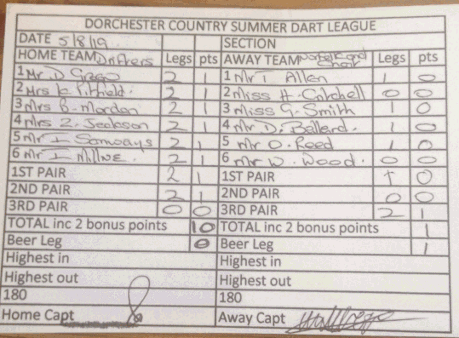 DORCHESTER COUNTRY SUMMER DART LEAGUE
DATE 5/8/19 SECTION
HOME TEAM Drifters Legs pts AWAY TEAM Legs pts
1 Mr D Grego 2 1 1 Mr T Allen 1 0
2 Mrs K Pitfield 2 1 2 Miss H. Gatchell 0 0
3 Mrs B. Morden 2 1 3 Miss G. Smith 1 0
4 Mrs Z. Jeakson 2 1 4 Mr D. Ballard. 1 0
5 Mr I Samways 2 1 5 Mr O. Reed 1 0
6 Mr I Millne. 2 1 6 Mr W. Wood. 0 0
1ST PAIR 2 1 1ST PAIR 1 0
2ND PAIR 2 1 2ND PAIR 0 0
3RD PAIR 0 0 3RD PAIR 2 1
TOTAL inc 2 bonus points 10 TOTAL inc 2 bonus points 1
Beer Leg 0 Beer Leg 1
Highest in Highest in
Highest out Highest out
180 180
Home Capt Away Capt